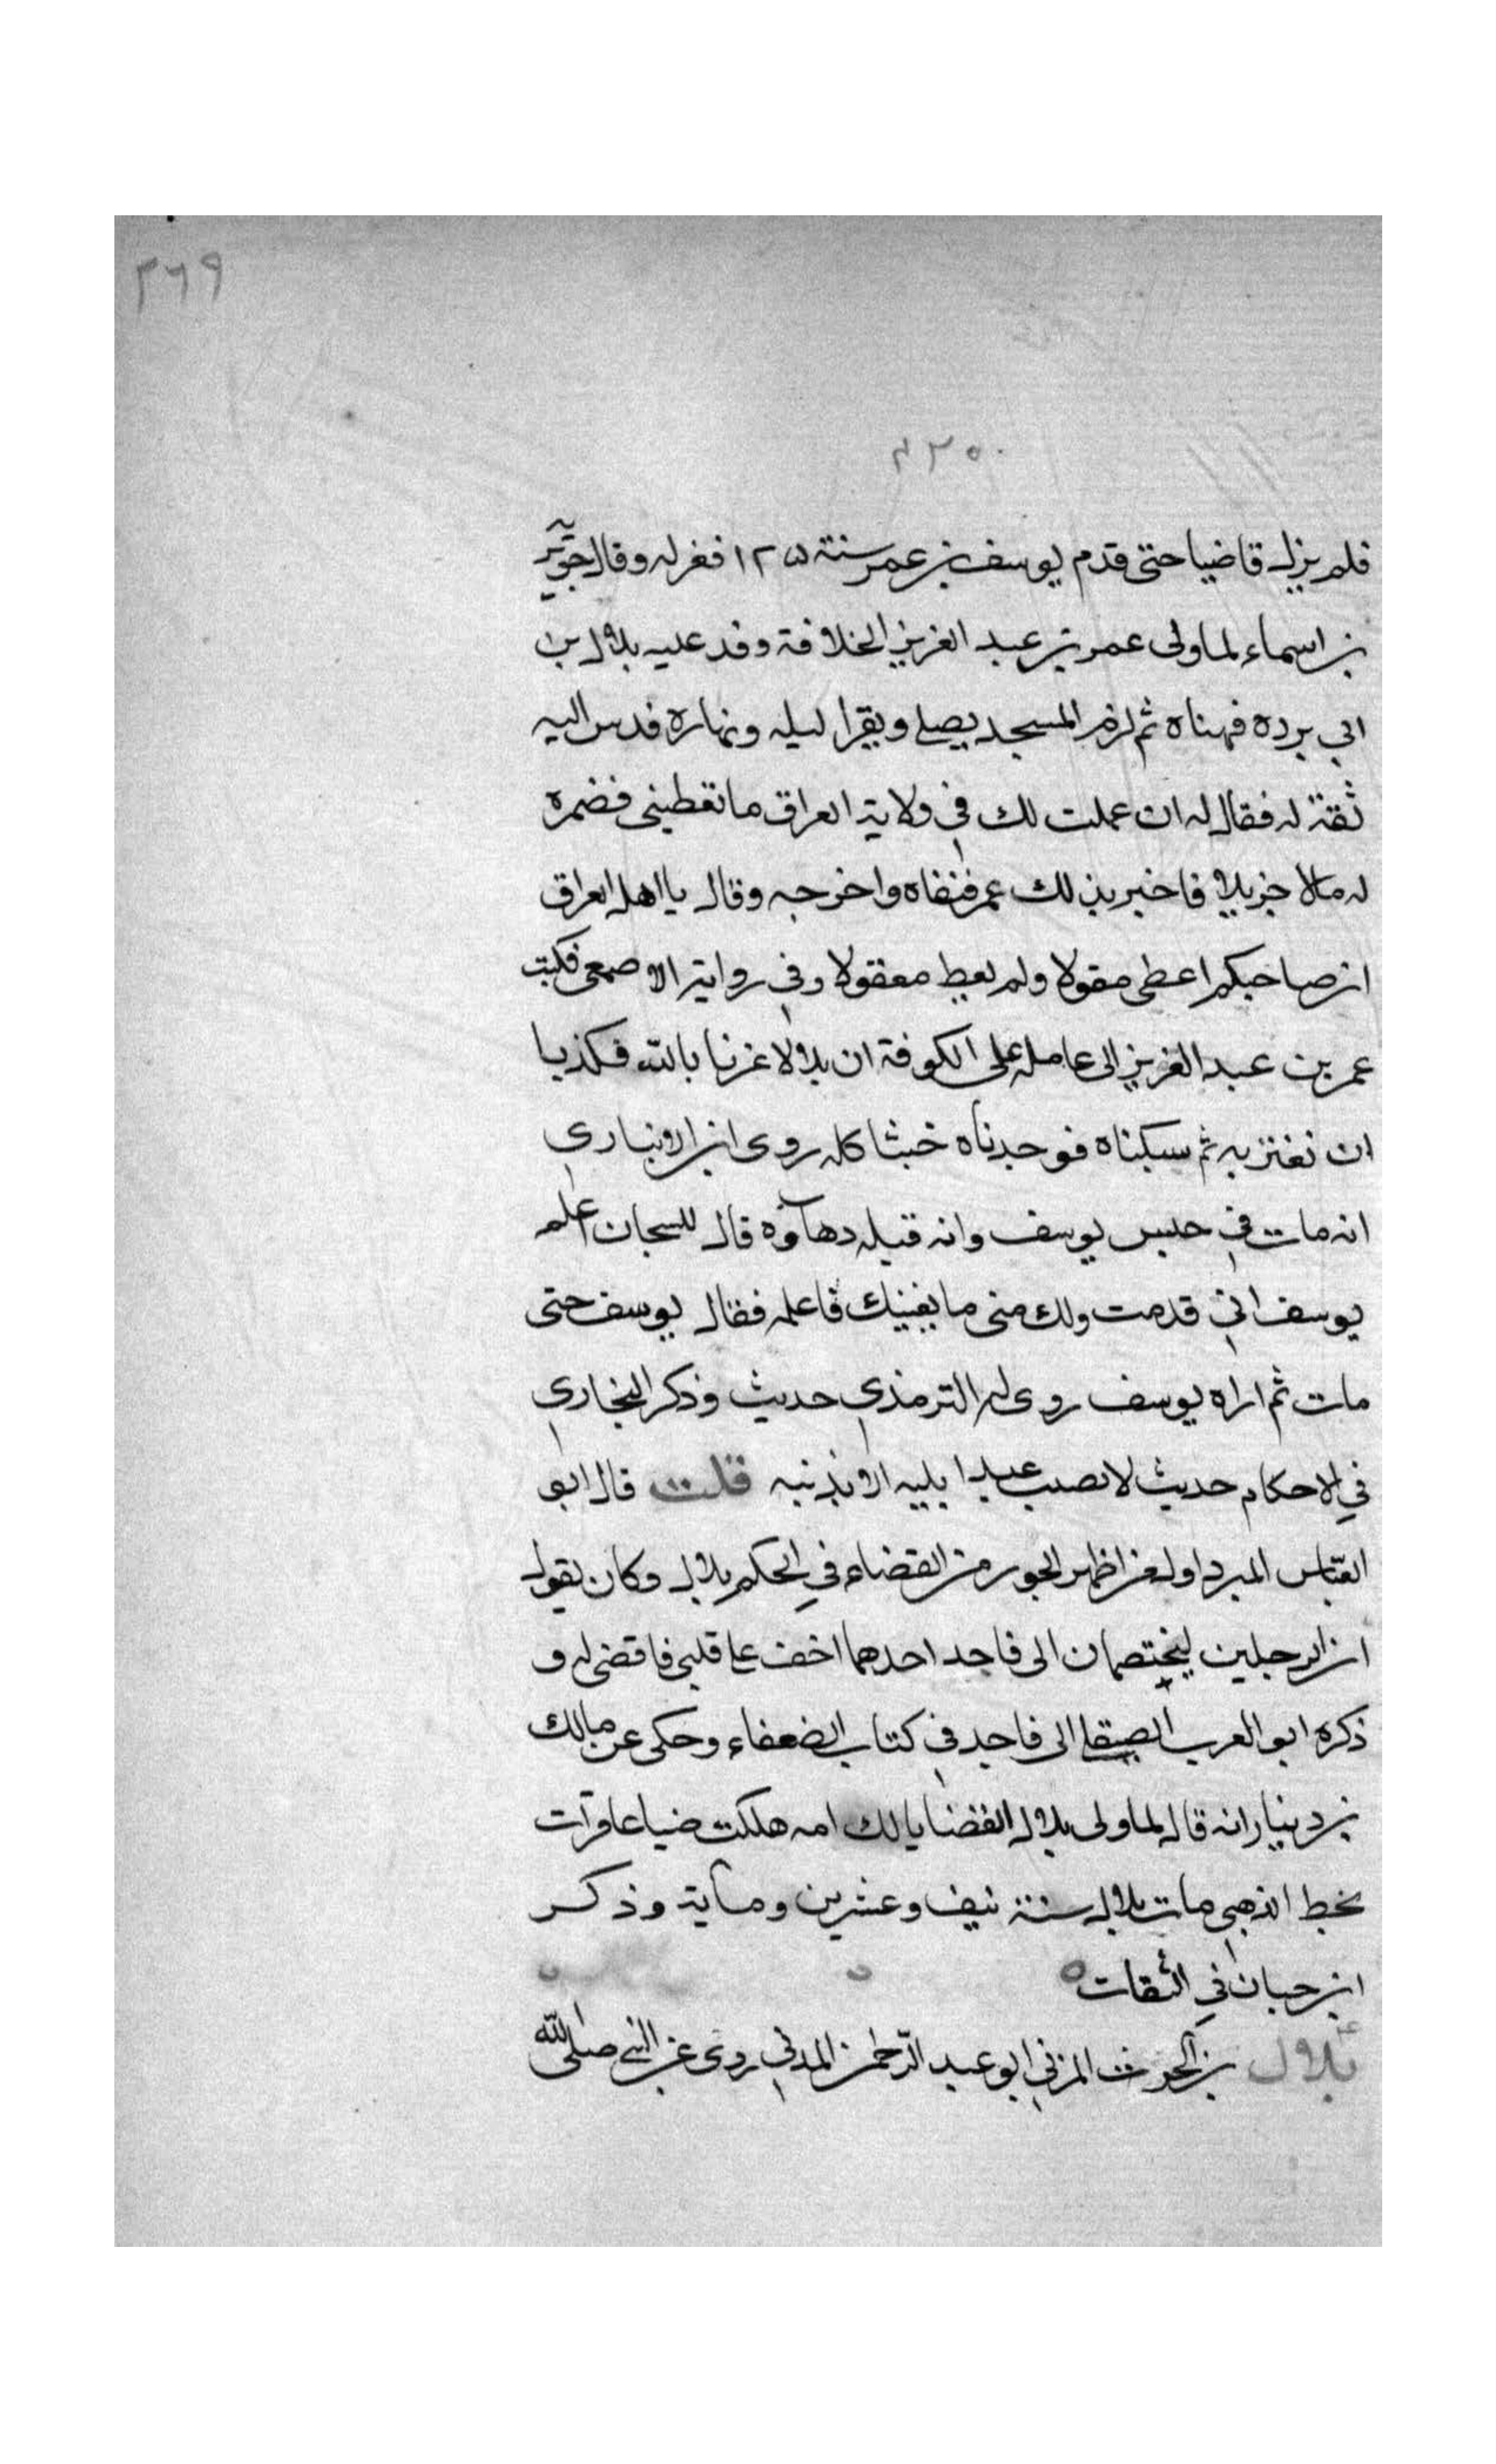 ٢٦٩
٢٣٥٠
فلم يزل قاضيا حتى قدم يوسف بن عمر سنة ١٢٥ فعزله وقال جويرية
بن اسماء لما ولى عمر بن عبد العزيز الخلافة وفد عليه بلال بن
ابي بردة فهناه ثم لزم المسجد يصلي ويقرا ليله ونهاره فدس اليه
ثقة له فقال له ان عملت لك في ولاية العراق ما تعطيني فضمن
له مالا جزيلا فاخبر بذلك عمر فنفاه واخرجه وقال يا اهل العراق
ان صاحبكم اعطى مقولا ولم يعط معقولا وفي رواية الاصمعي فكتب
عمر بن عبد العزيز الى عامله على الكوفة ان بلالا غرنا بالله فكدنا
ان نغتر به ثم سبكناه فوجدناه خبثا كله روى ابن الانباري
انه مات في حبس يوسف وانه قتله دهاؤه قال للسجان اعلم
يوسف اني قد مت ولك مني ما يغنيك فاعلمه فقال يوسف حتى
مات ثم اراه يوسف روى له الترمذي حديث وذكر البخاري
في الاحكام حديث لا تصيب عبدا بليه الا بذنبه قلت قال ابو
العباس المبرد اول من اظهر الجور من القضاء في الحكم بلال وكان يقول
ان الرجلين ليختصمان الى فاجد احدهما اخف على قلبي فاقضي له و
ذكره ابو العرب الصقلي الى فاجد في كتاب الضعفاء وحكى عن مالك
بن دينار انه قال لما ولى بلال القضا يا لك امه هلكت ضياعا وقرات
بخط الذهبي مات بلال سنة نيف وعشرين وماية وذكر
ابن حبان في الثقات ه
بلال بن الحرث المزني ابو عبد الرحمن المدني روى عن النبي صلى الله